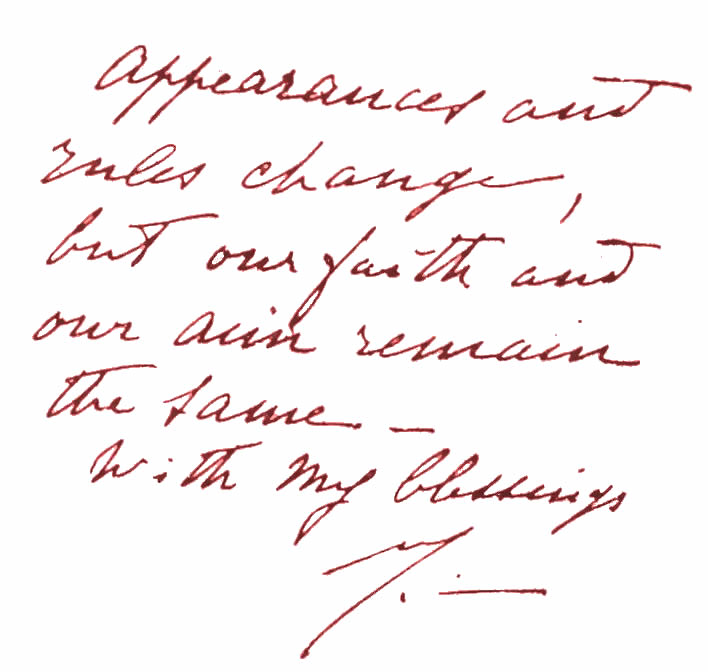 Appearances and
rules change,
but our faith and
our aim remain
the same. —
With my blessings